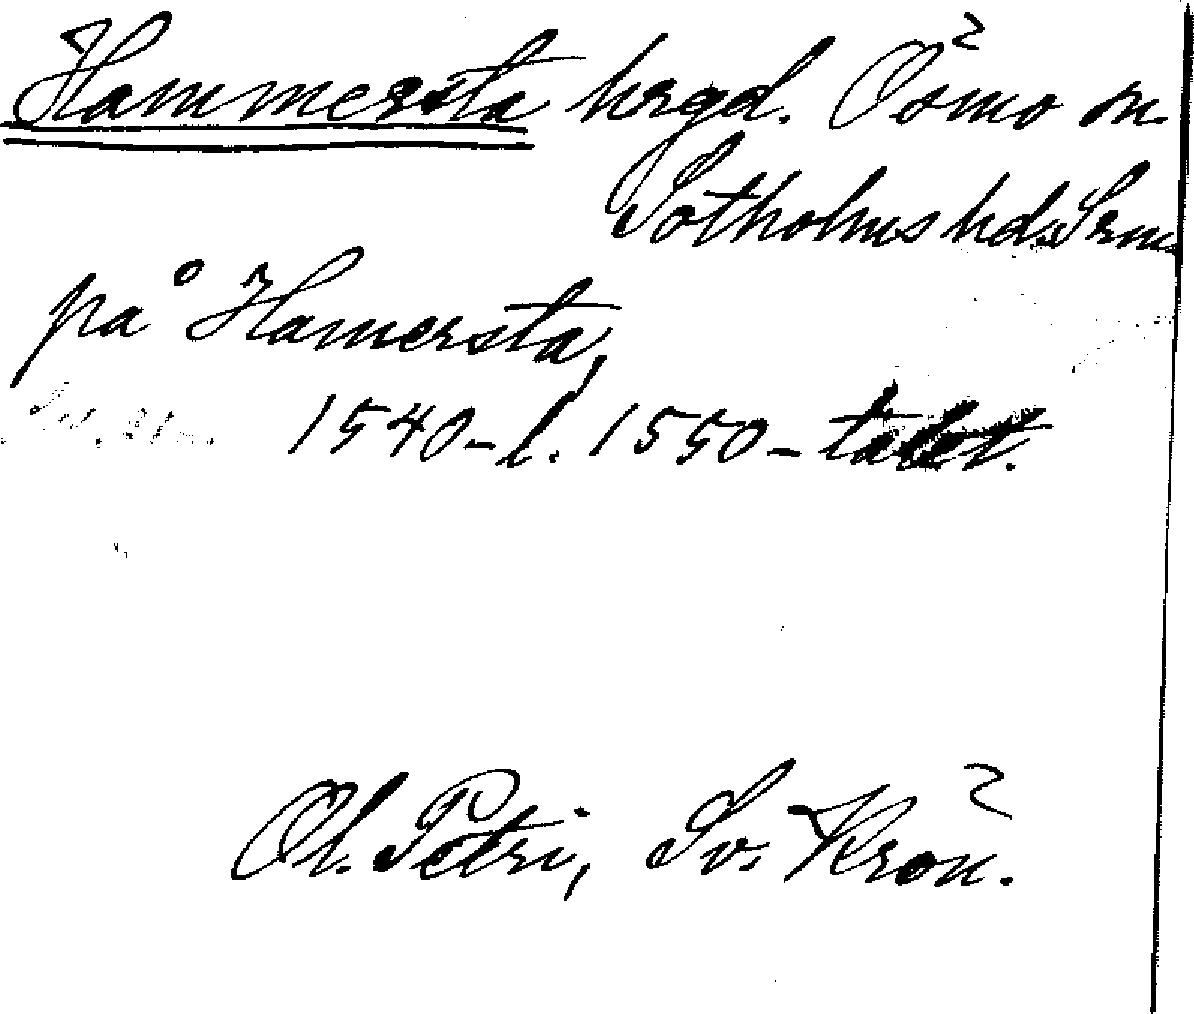 Hammersta hrgd. Ösmo sn
Sotholms hd, Srm.
på Hamersta,
1540- l. 1550-talet.
Ol. Petri, Sv. Krön.